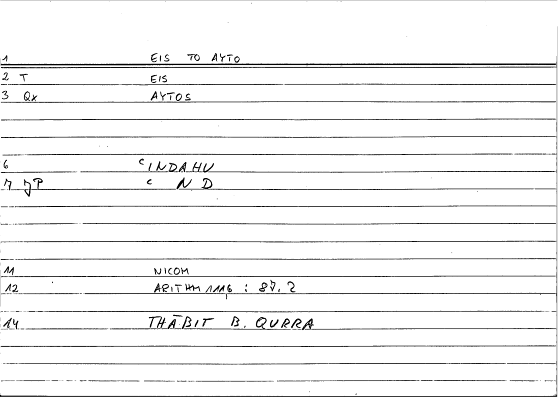 1 EIS TO AYTO
2 T EIS
3 Qx AYTOS
6 ᶜINDAHU
7 JP ᶜ N D
11 NICOM
12 ARITHM 1116 : 87.2
14 THĀBIT B. QURRA